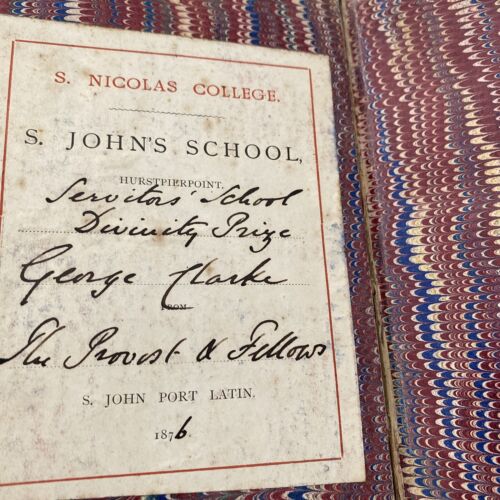 S. NICOLAS COLLEGE.
S. JOHN'S SCHOOL,
HURSTPIERPOINT.
Servitors' School
Divinity Prize
George Clarke
FROM
The Provost & Fellows
S. JOHN PORT LATIN.
1876.